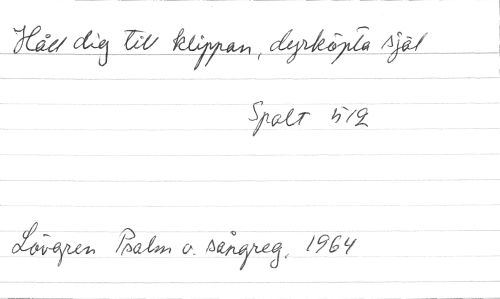 Håll dig till klippan, dyrköpta själ
Spalt 512
Lövgren Psalm o. sångreg. 1964